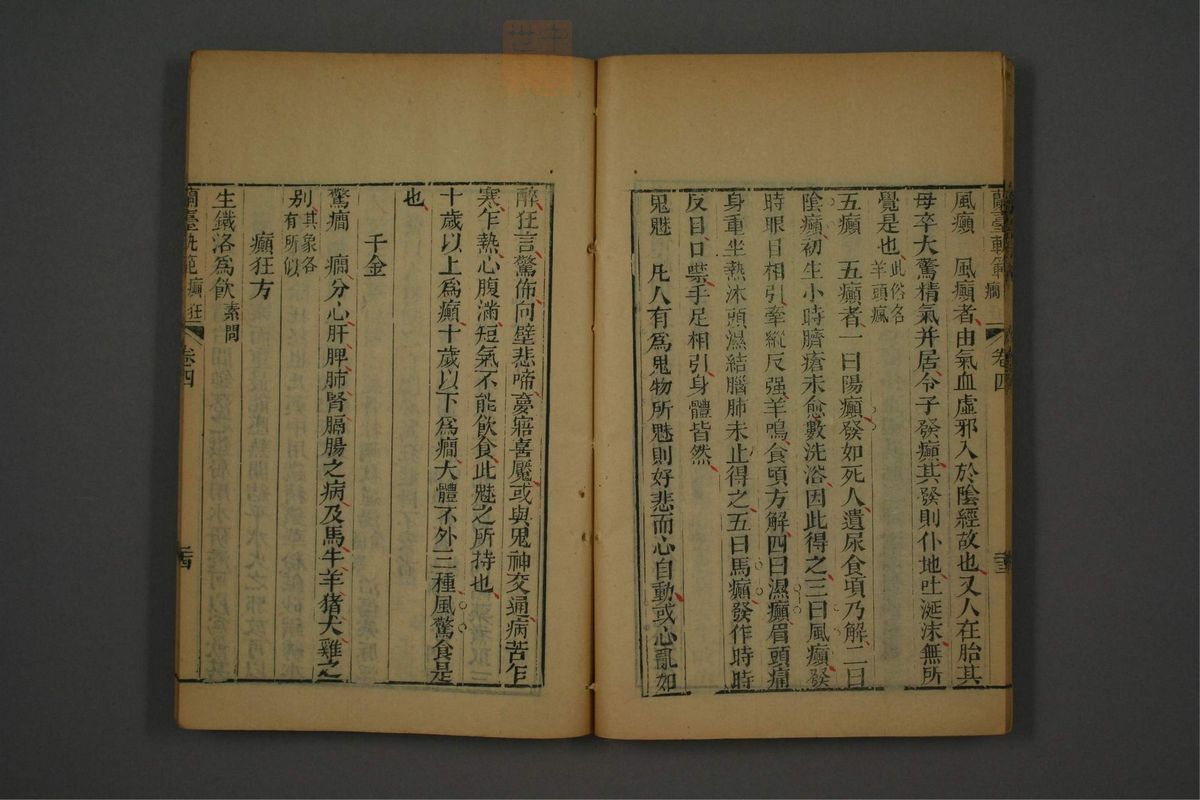 蘭臺軌範 癲狂 卷四 二十三
風癲 風癲者由氣血虛邪入於陰經故也又人在胎其
母卒大驚精氣并居令子發癲其發則仆地吐涎沫無所
覺是也此俗名羊頭瘋
五癲 五癲者一曰陽癲發如死人遺尿食頃乃解二曰
陰癲初生小時臍瘡未愈數洗浴因此得之三曰風癲發
時眼目相引牽縱反强羊鳴食頃方解四曰濕癲眉頭痛
身重坐熱沐頭濕結腦肺未止得之五曰馬癲發作時時
反目口噤手足相引身體皆然
鬼魅 凡人有爲鬼物所魅則好悲而心自動或心亂如
醉狂言驚怖向壁悲啼夢寤喜魘或與鬼神交通病苦乍
寒乍熱心腹滿短氣不能飲食此魅之所持也
十歲以上爲癲十歲以下爲癎大體不外三種風驚食是
也
千金
驚癎 癎分心肝脾肺腎膈腸之病及馬牛羊猪犬雞之
別其象各有所似
癲狂方
生鐵洛爲飲素問
蘭臺軌範 癲狂 卷四 二十四